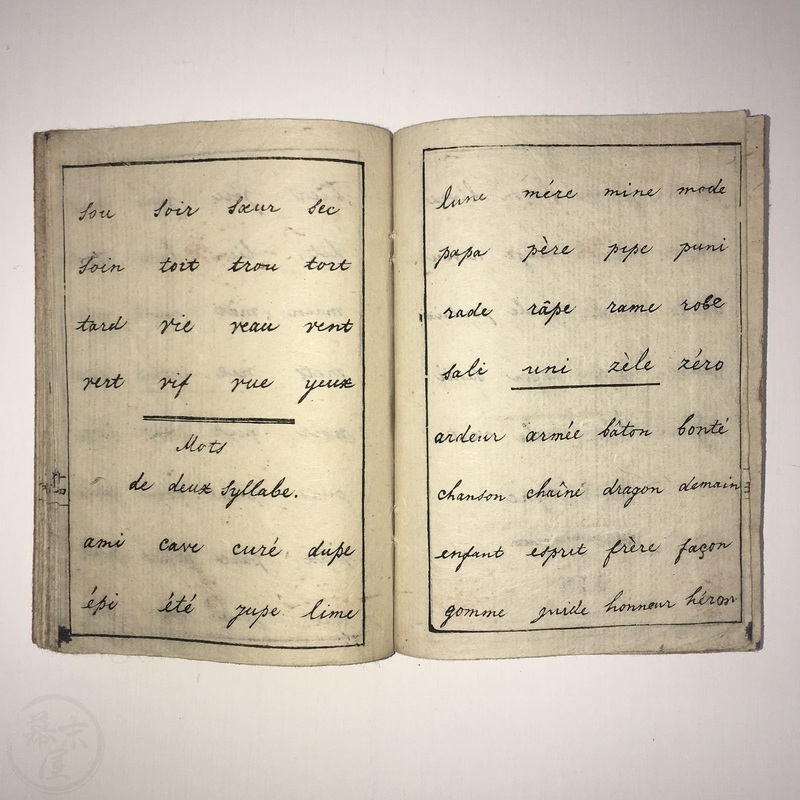 sou soir sœur sec
soin toit trou tort
tard vie veau vent
vert vif vue yeux
Mots
de deux syllabe.
ami cave curé dupe
épi été jupe lime
lune mére mine mode
papa père pipe puni
rade râpe rame robe
sali uni zèle zéro
ardeur armée bâton bonté
chanson chaîné dragon demain
enfant esprit frère façon
gomme guide honneur héron
幕末屋